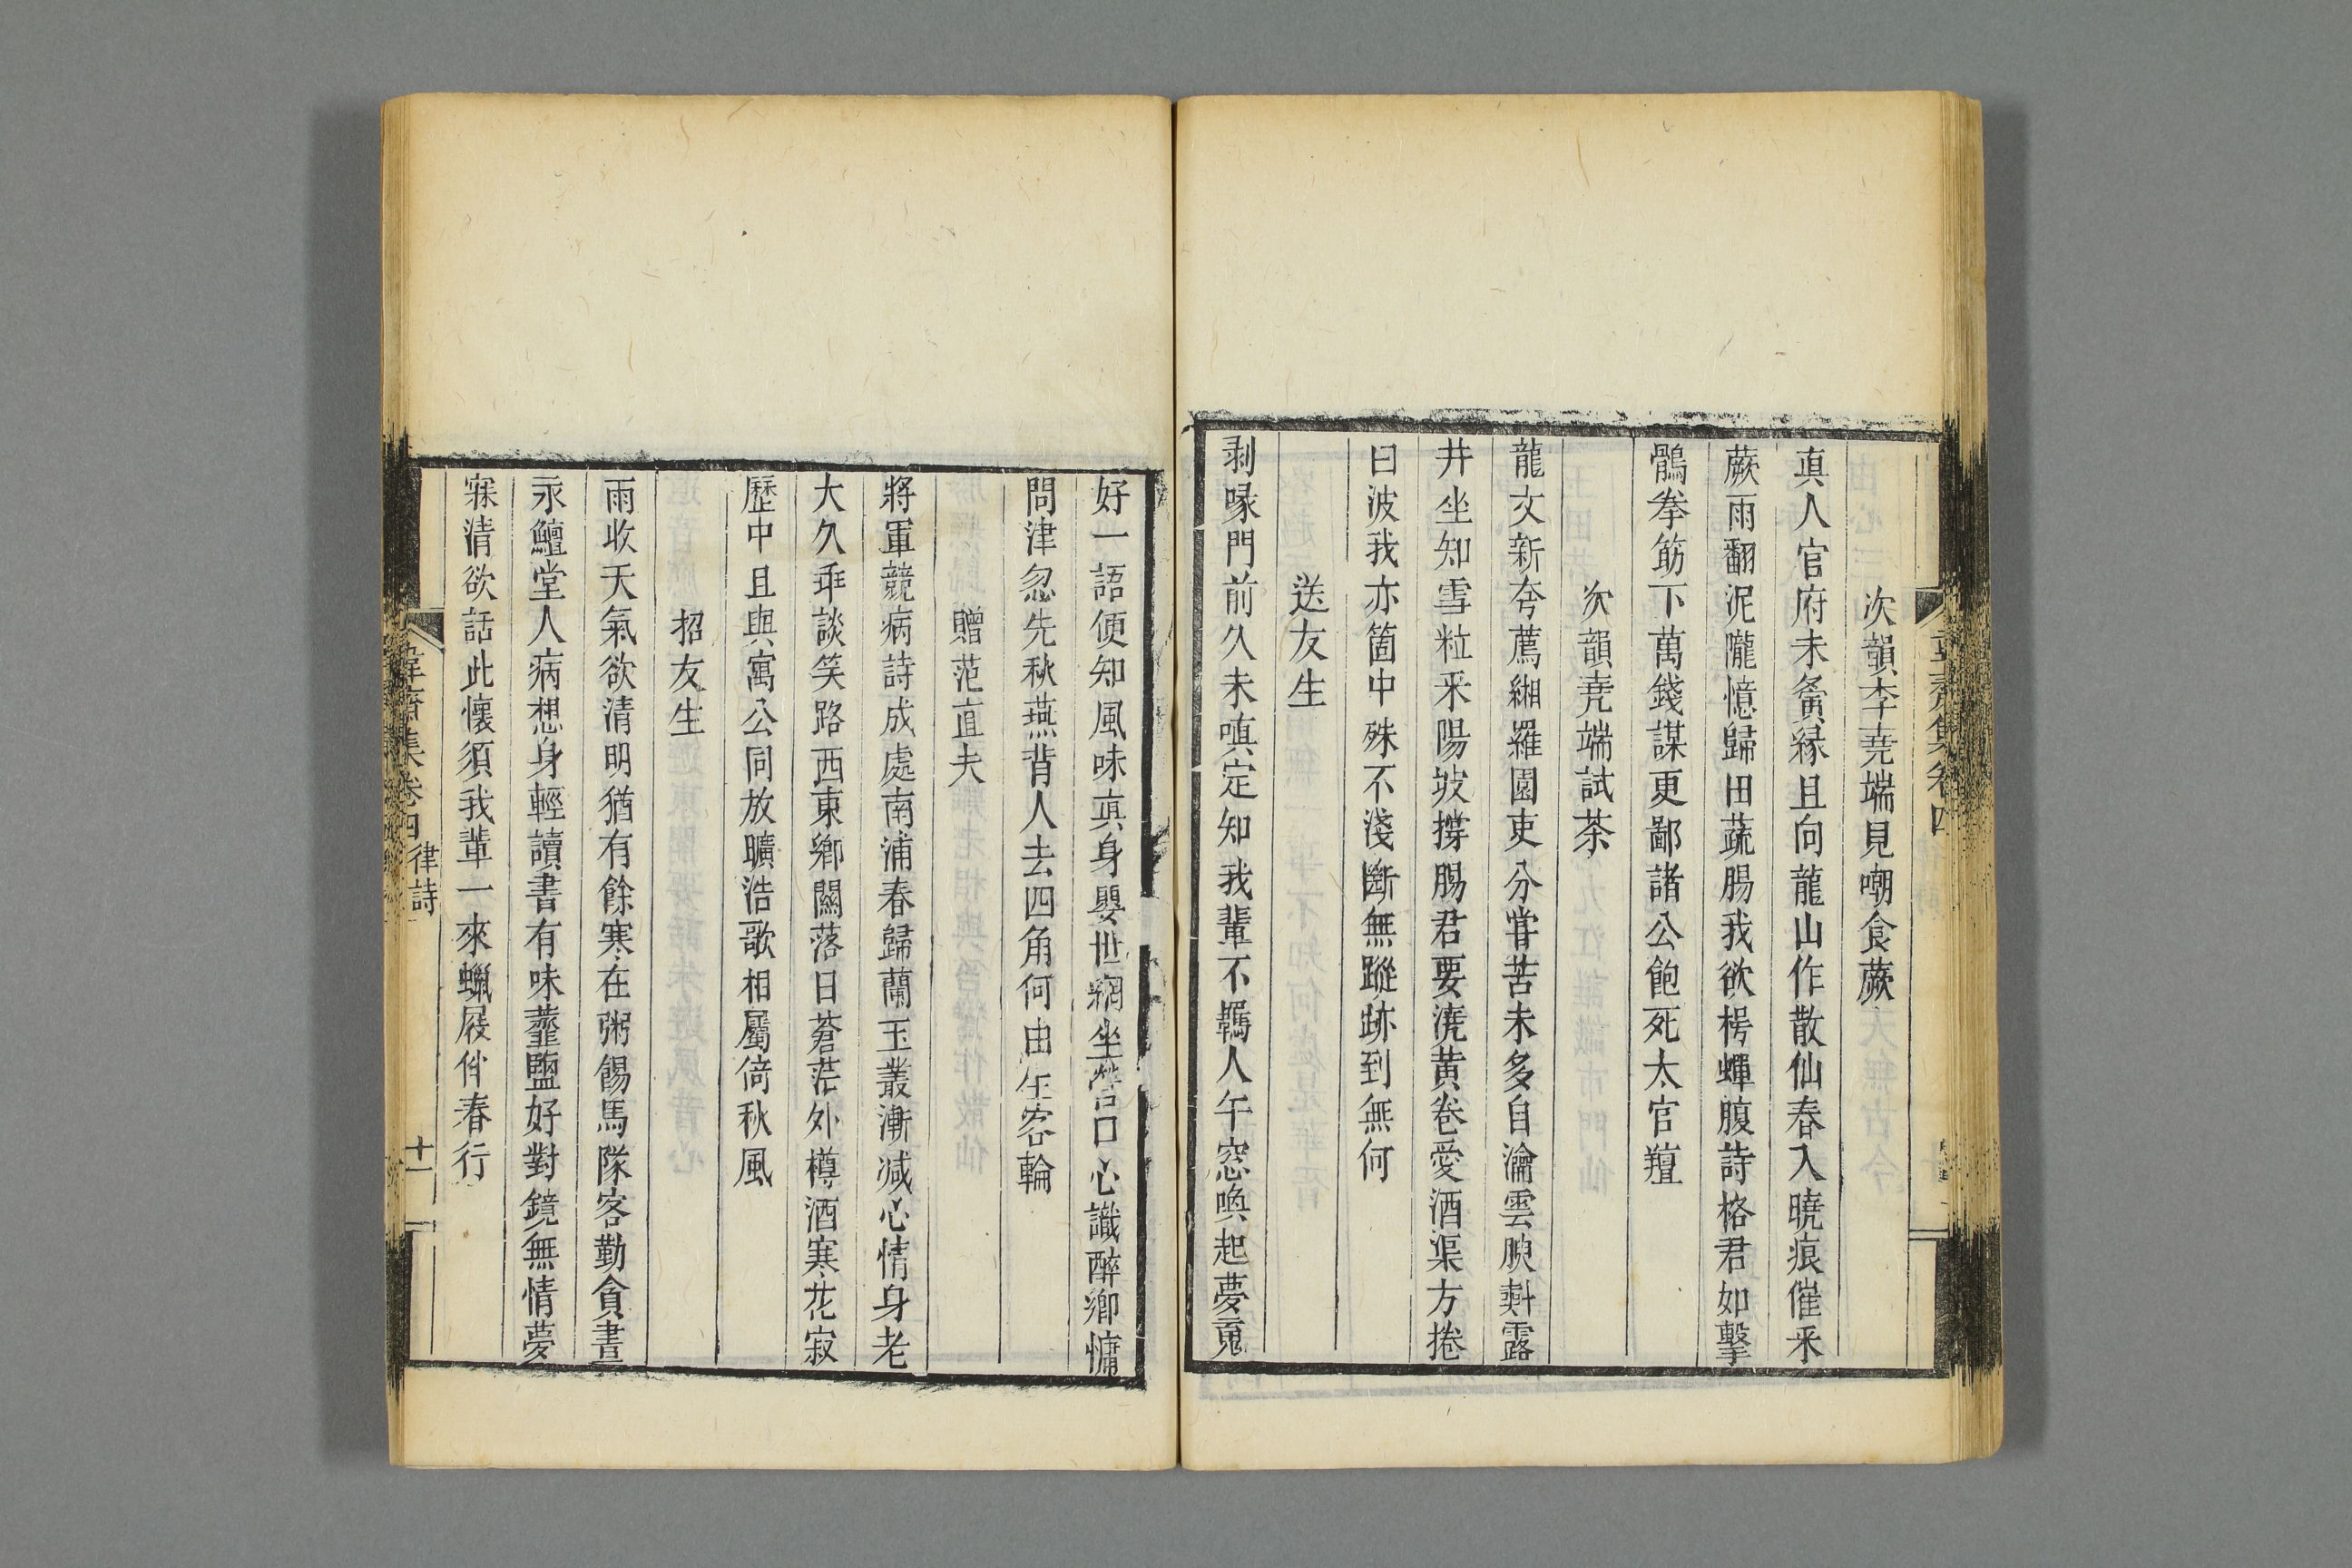 韋齋集卷四
次韻李堯端見嘲食蕨
真人官府未夤緣且向龍山作散仙春入曉痕催采
蕨雨翻泥隴憶歸田蔬腸我欲枵蟬腹詩格君如擊
鶻拳筯下萬錢謀更鄙諸公飽死太官羶
次韻堯端試茶
龍文新夸薦緗羅園吏分甞苦未多自瀹雲腴𣂏露
井坐知雪粒采陽坡撐腸君要澆黃卷愛酒渠方捲
白波我亦箇中殊不淺斷無蹤跡到無何
送友生
剥啄門前久未嗔定知我輩不羈人午窓喚起夢䰟
好一語便知風味真身嬰世網坐營口心識醉鄉慵
問津忽先秋燕背人去四角何由生客輪
贈范直夫
將軍競病詩成處南浦春歸蘭玉叢漸减心情身老
大久乖談笑路西東鄉關落日蒼茫外樽酒寒花寂
歷中且與寓公同放曠浩歌相屬倚秋風
招友生
雨收天氣欲清明猶有餘寒在粥餳馬隊客勤貪晝
永鱣堂人病想身輕讀書有味虀鹽好對鏡無情夢
寐清欲話此懷須我輩一來蠟屐伴春行
韋齋集卷四 律詩
十一